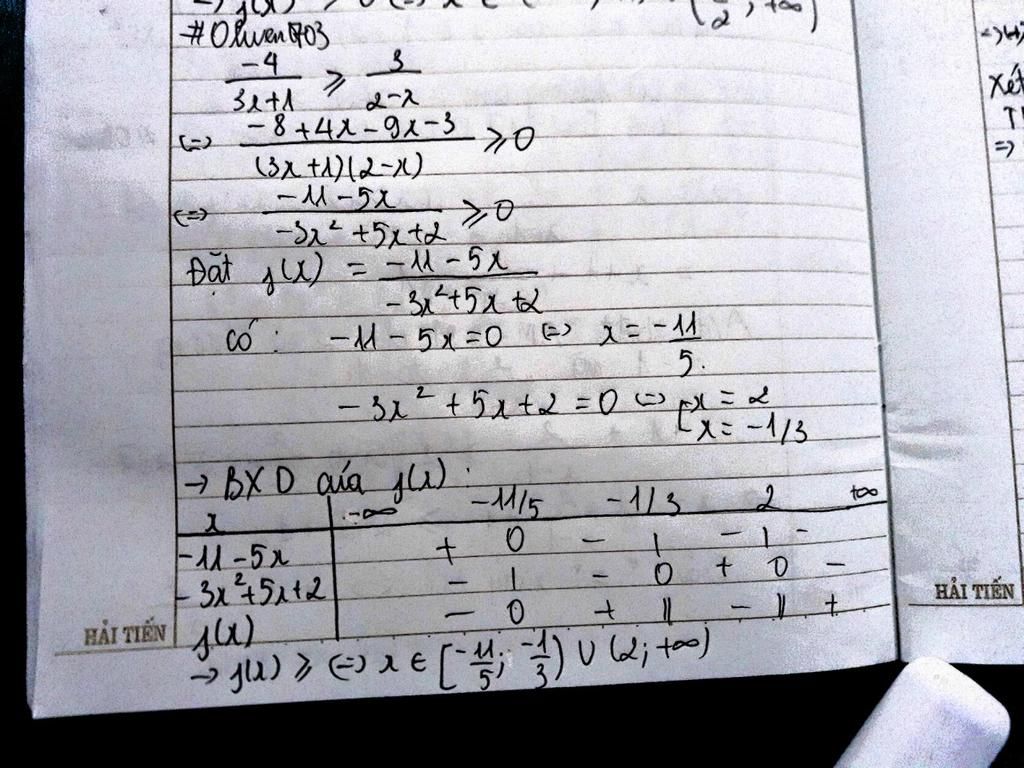 → f(x) ≥ 0 (=) x ∈ ; +∞)
#Oluen703
-4/(3x+1) ≥ 3/(2-x)
(=) (-8+4x-9x-3)/((3x+1)(2-x)) ≥ 0
(=) (-11-5x)/(-3x²+5x+2) ≥ 0
Đặt f(x) = (-11-5x)/(-3x²+5x+2)
Có: -11-5x=0 (=) x = -11/5.
-3x²+5x+2=0 (=) [x = 2
x = -1/3
→ BXD của f(x):
x -∞ -11/5 -1/3 2 +∞
-11-5x + 0 - | - | -
-3x²+5x+2 - | - 0 + 0 -
f(x) - 0 + || - || +
→ f(x) ≥ (=) x ∈ [-11/5; -1/3) ∪ (2; +∞)
HẢI TIẾN
Xét
HẢI TIẾN